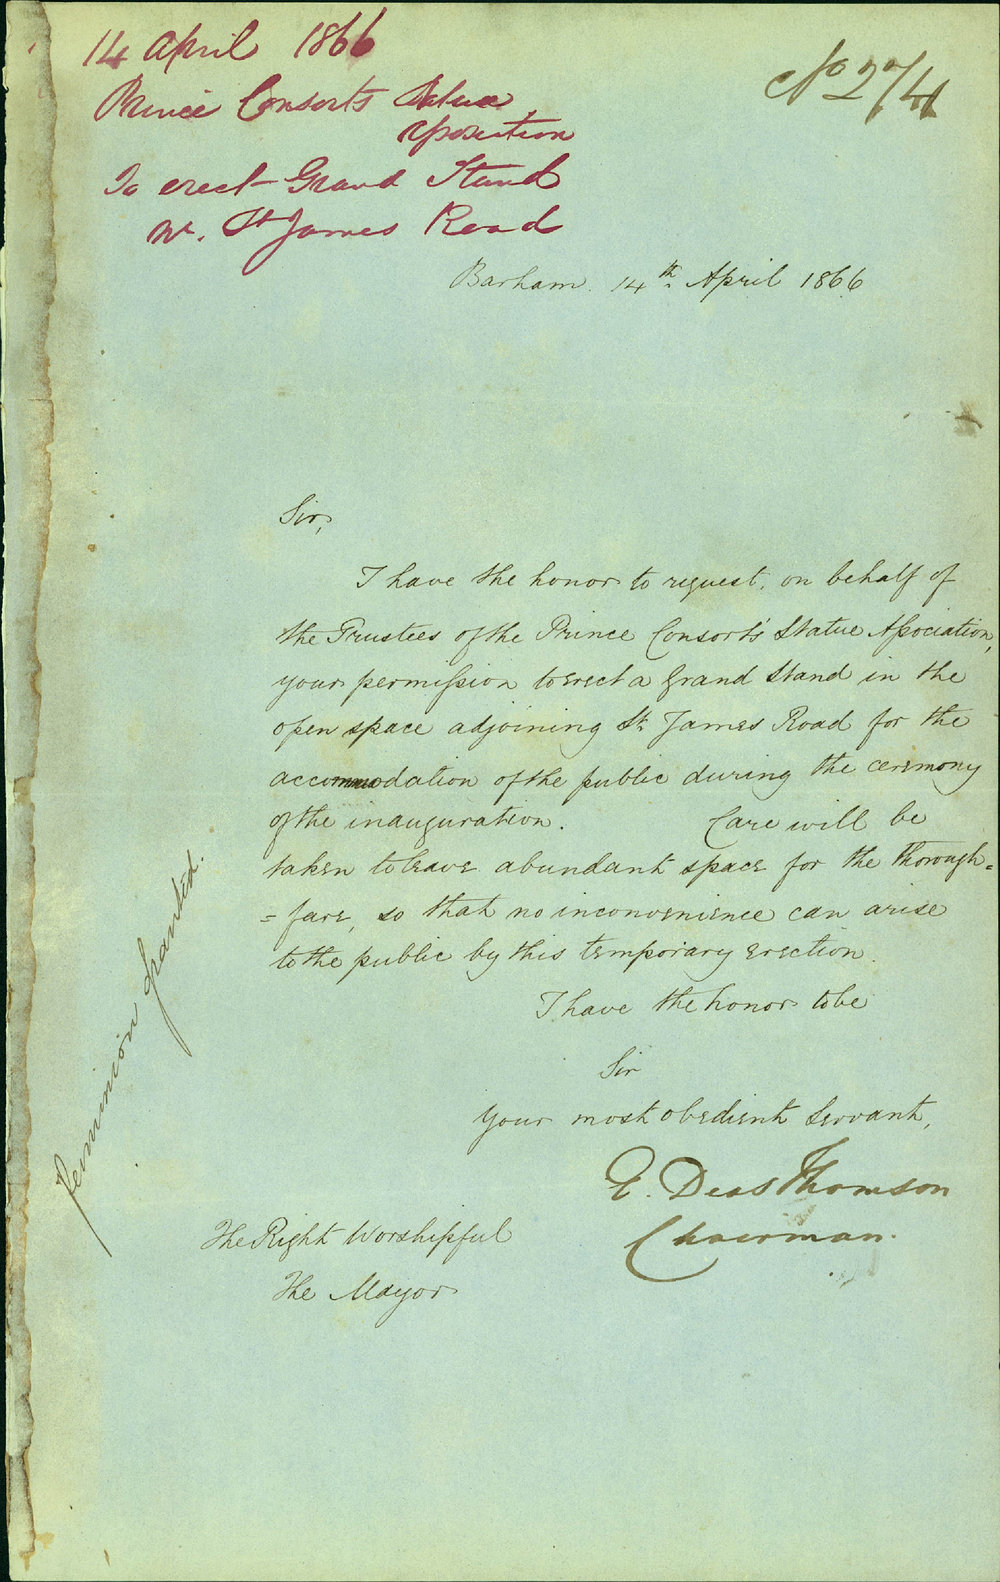 14 April 1866
Prince Consorts Statue
To erect Grand Stand
St James Road
No 274
Barham. 14th April 1866
Sir,
I have the honor to request, on behalf of
the Trustees of the Prince Consort's Statue Association,
your permission to erect a Grand Stand in the
open space adjoining St. James Road for the
accommodation of the public during the ceremony
of the inauguration. Care will be
taken to leave abundant space for the thorough=
=fare, so that no inconvenience can arise
to the public by this temporary erection.
I have the honor to be
Sir
Your most obedient Servant,
E. Deas Thomson
Chairman.
The Right Worshipful
The Mayor
Permission granted.